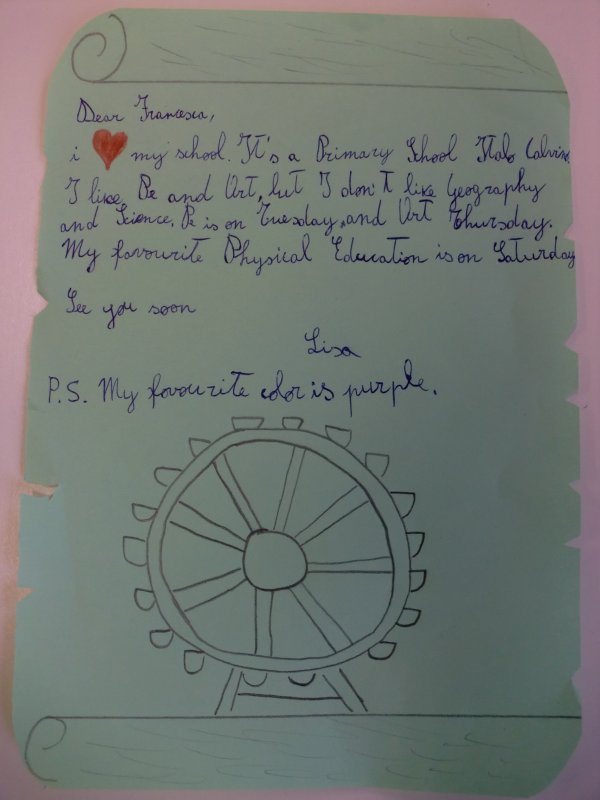 Dear Francesca,
i ❤ my school. It's a Primary School Italo Calvino
I like Pe and Art, but I don't like Geography
and Science. Pe is on Tuesday and Art Thursday.
My favourite Physical Education is on Saturday
See you soon
Lisa
P.S. My favourite color is purple.